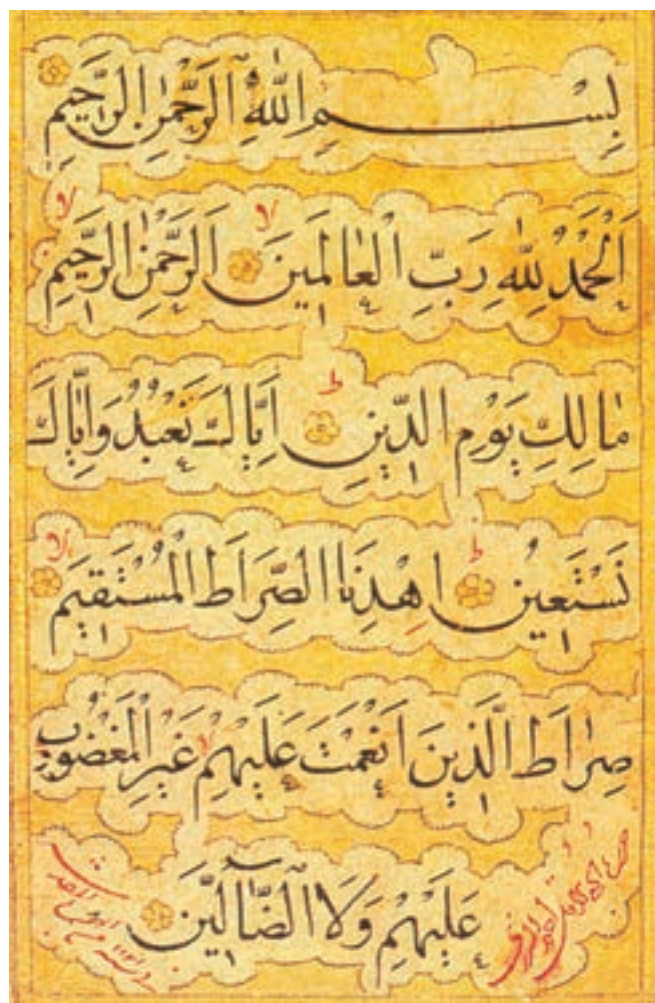 بِسْمِ اللّٰهِ الرَّحْمٰنِ الرَّحِيمِ
اَلْحَمْدُ لِلّٰهِ رَبِّ الْعَالَمِينَ الرَّحْمٰنِ الرَّحِيمِ
مَالِكِ يَوْمِ الدِّينِ اِيَّاكَ نَعْبُدُ وَاِيَّاكَ
نَسْتَعِينُ اِهْدِنَا الصِّرَاطَ الْمُسْتَقِيمَ
صِرَاطَ الَّذِينَ اَنْعَمْتَ عَلَيْهِمْ غَيْرِ الْمَغْضُوبِ
عَلَيْهِمْ وَلَا الضَّٓالِّينَ